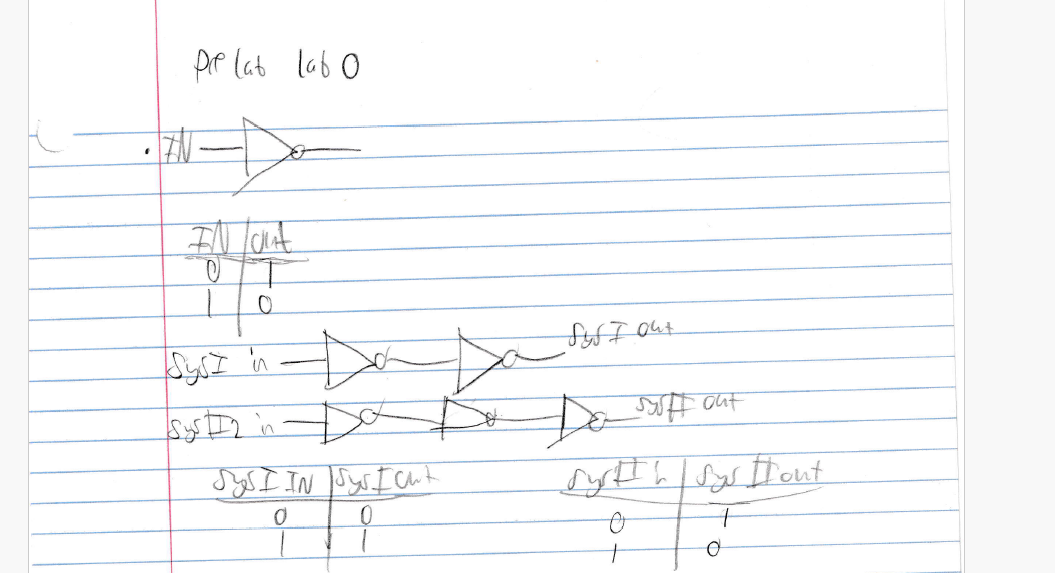 Pre lab lab 0
IN
IN | out
0 | 1
1 | 0
SysI in SysI out
SysII2 in SysII out
SysI IN | SysI out
0 | 0
1 | 1
SysII in | SysII out
0 | 1
1 | 0